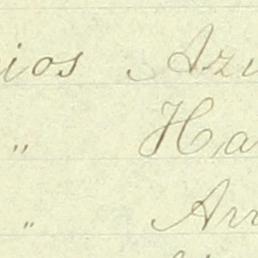 ios Azu
" Ha
" Arr